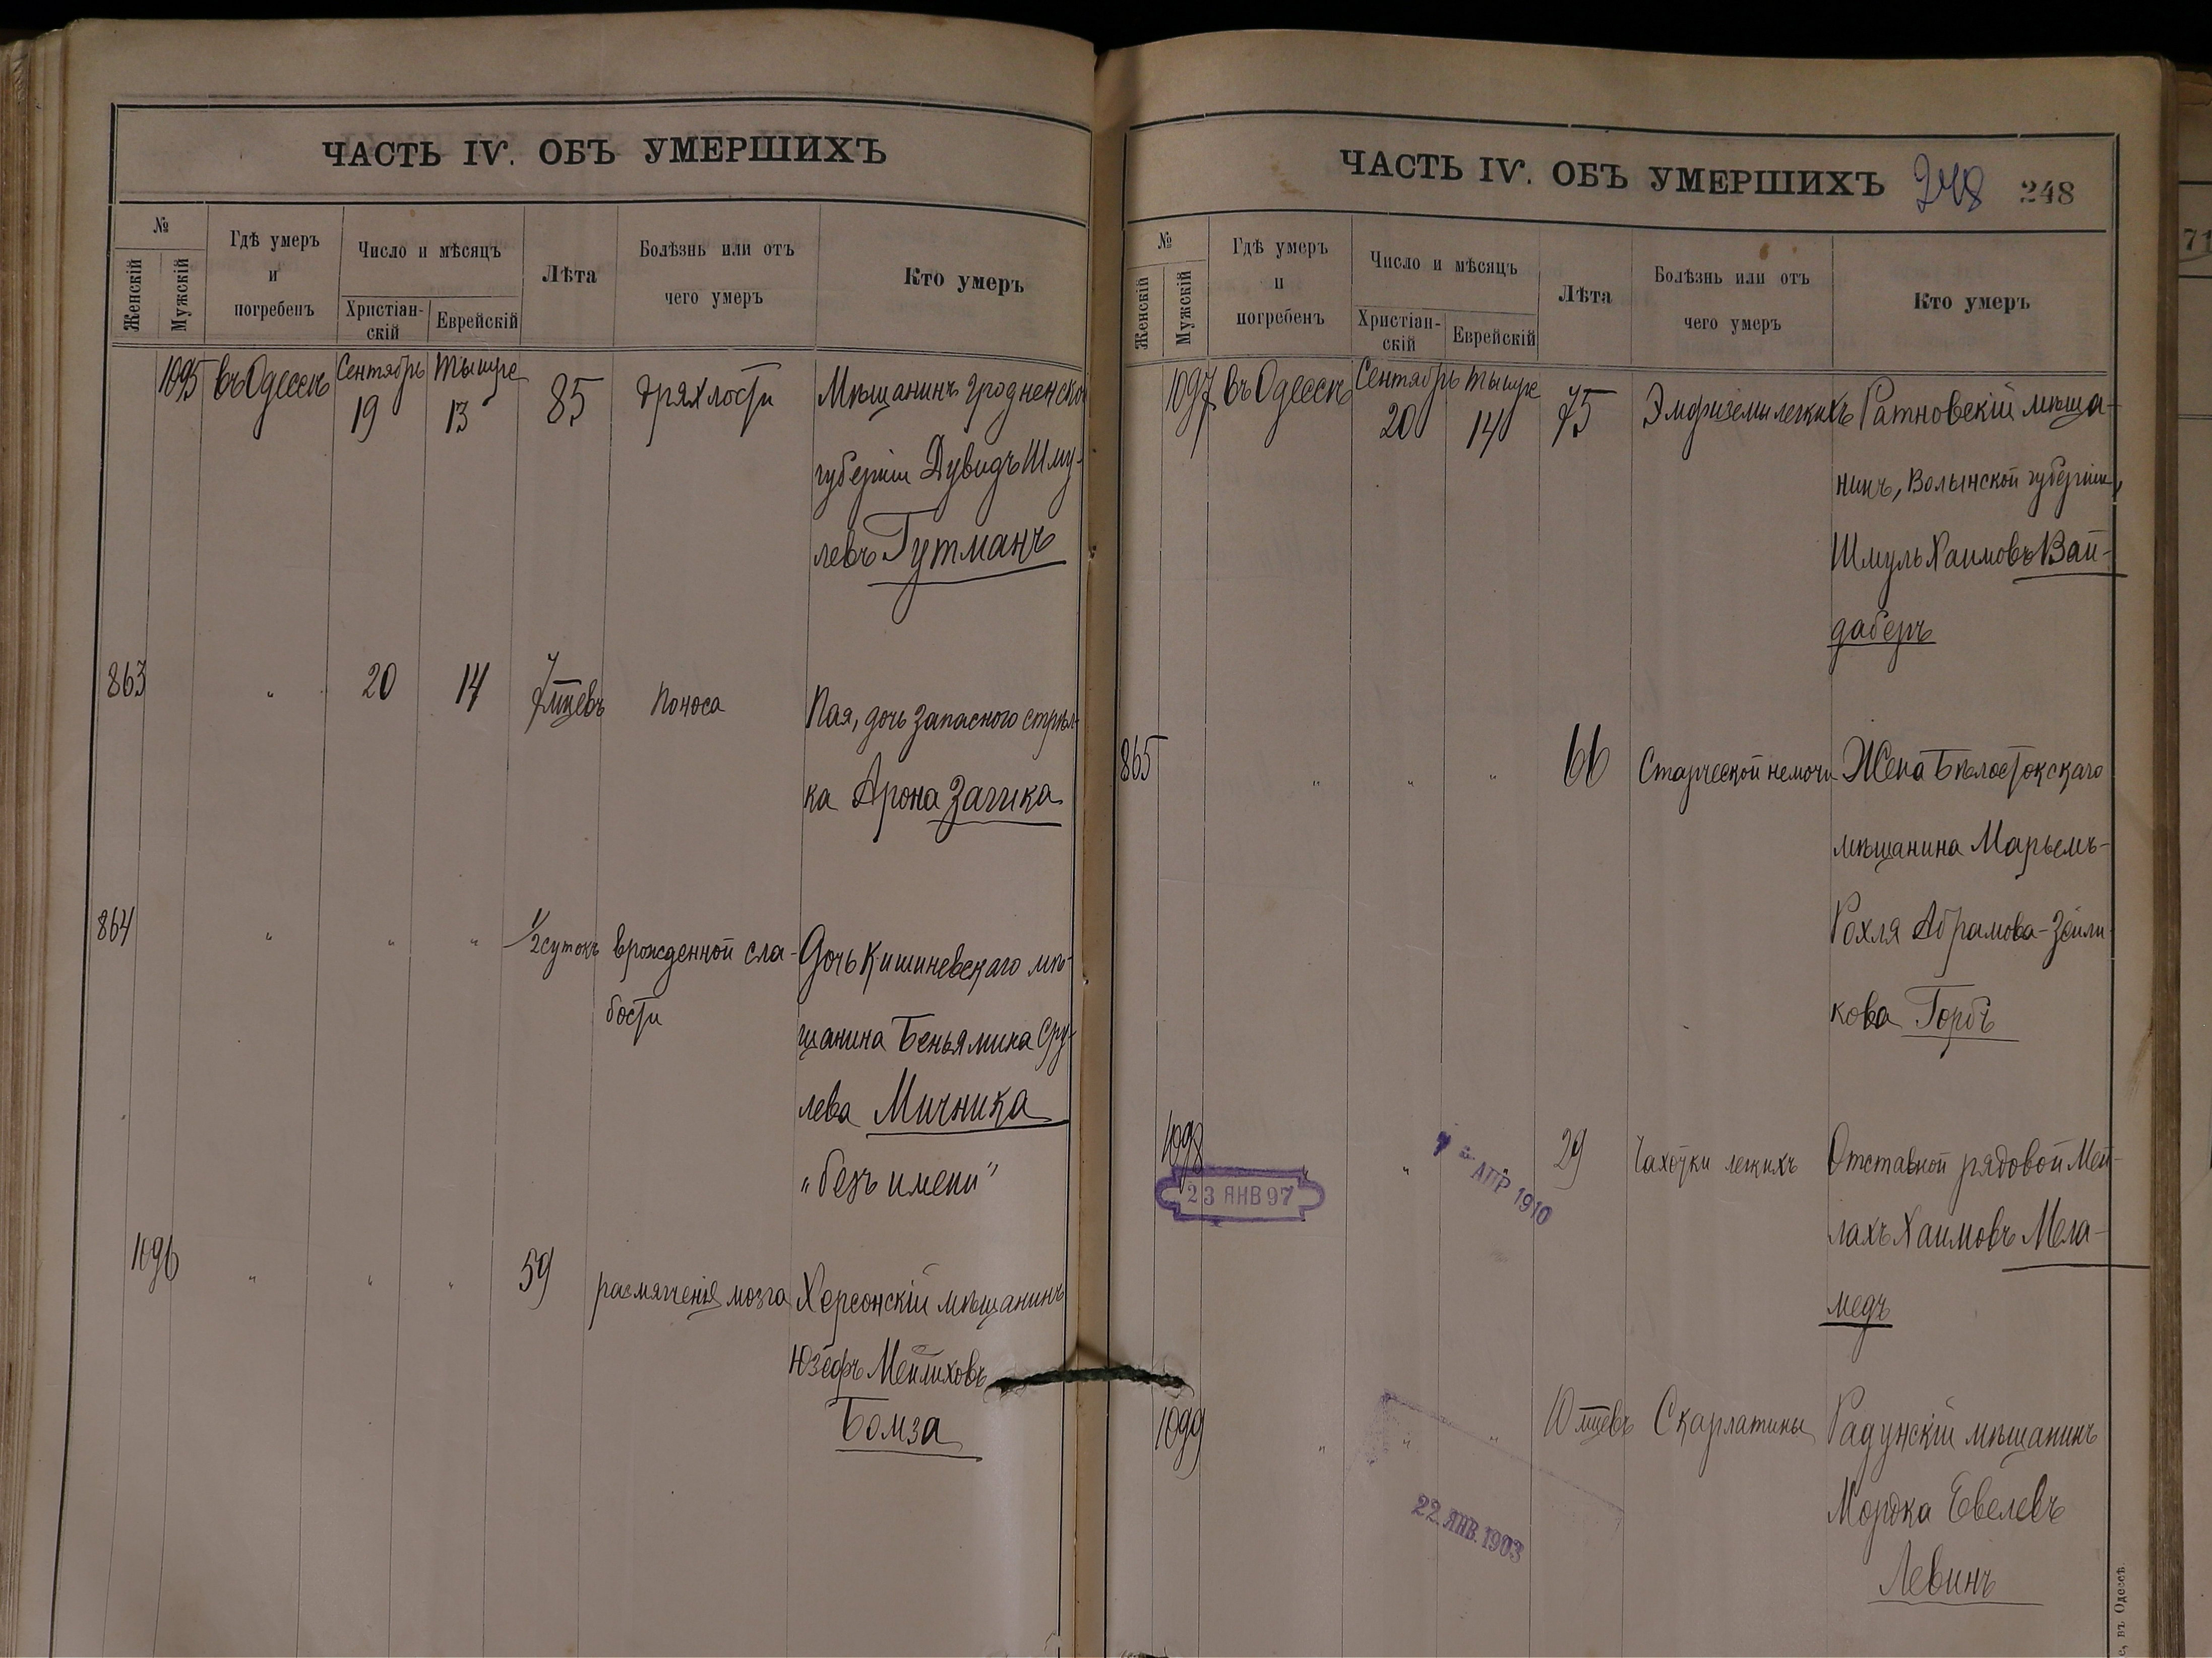 ЧАСТЬ IV. ОБЪ УМЕРШИХЪ
№
Женскій
Мужскій
Гдѣ умеръ
и
погребенъ
Число и мѣсяцъ
Христіан-
скій
Еврейскій
Лѣта
Болѣзнь или отъ
чего умеръ
Кто умеръ
1095 въ Одессѣ Сентябрь 19 Тышре 13 85 дряхлости Мѣщанинъ Гродненской
губерніи Дувидъ Шму-
левъ Гутманъ
863 " 20 14 7 мцевъ поноса Пая, дочь запасного стрѣл-
ка Арона Зачика
864 " " " 1/2 сутокъ врожденной сла- Дочь Кишиневскаго мѣ-
бости
щанина Беньямина Сру-
лева Мичника
"безъ имени"
1096 " " " 59 размягченія мозга Херсонскій мѣщанинъ
Юзефъ Мейлиховъ
Бомза
ЧАСТЬ IV. ОБЪ УМЕРШИХЪ 248 248
№
Женскій
Мужскій
Гдѣ умеръ
и
погребенъ
Число и мѣсяцъ
Христіан-
скій
Еврейскій
Лѣта
Болѣзнь или отъ
чего умеръ
Кто умеръ
1097 въ Одессѣ Сентябрь 20 Тышре 14 75 Эмфиземы легкихъ Ратновскій мѣща-
нинъ, Волынской губерніи,
Шмуль Хаимовъ Вай-
даберъ
865 " " " 66 Старческой немочи Жена Бѣлостокскаго
мѣщанина Марьемъ-
Рохля Абрамова-Зейли-
кова Горбъ
1098 " 29 Чахотки легкихъ Отставной рядовой Мей-
лахъ Хаимовъ Мела-
медъ
23 ЯНВ 97
АПР 1910
1099 " " " 10 мцевъ Скарлатины Радунскій мѣщанинъ
Мордка Евелевъ
Левинъ
22. ЯНВ. 1903
с, въ Одессѣ.
71